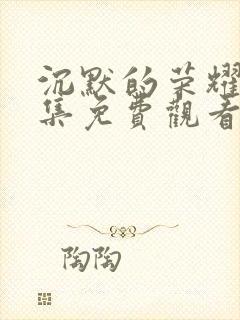 沉默的荣耀
集免費觀看
陶陶